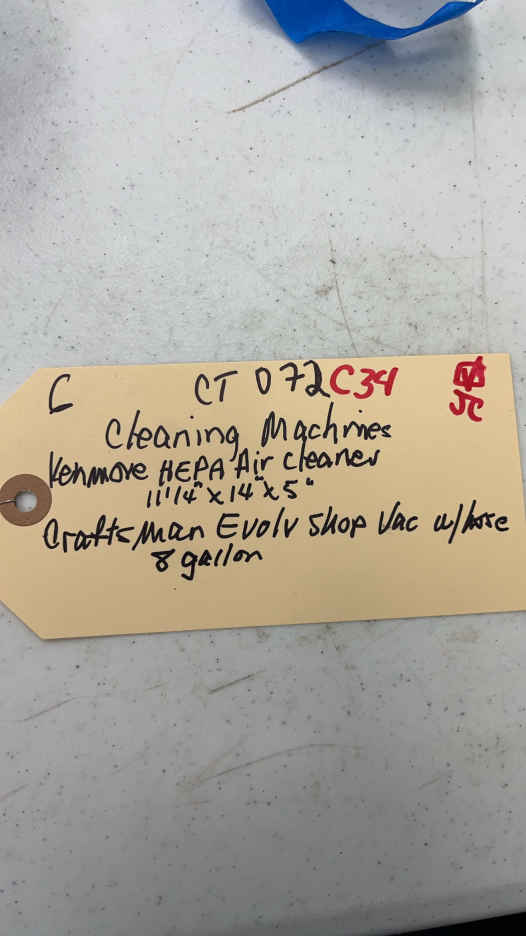 C CT 072 C34
JC
Cleaning Machines
Kenmore HEPA Air Cleaner
11 1/4" x 14" x 5"
Craftsman Evolv Shop Vac w/hose
8 gallon